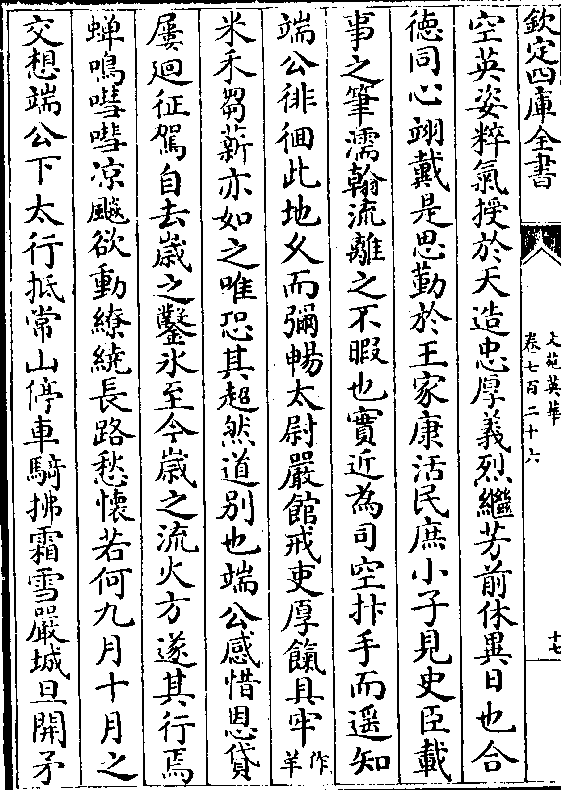 欽定四庫全書
文苑英華
卷七百二十六
十七
空英姿粹氣授於天造忠厚義烈繼芳前休異日也合
徳同心翊戴是思勤於王家康活民庶小子見史臣載
事之筆濡翰流離之不暇也實近為司空抃手而遥知
端公徘徊此地乆而彌暢太尉嚴館戒吏厚餼具牢作羊
米禾芻薪亦如之唯恐其超然道别也端公感惜恩貸
屢迴征駕自去嵗之鑿氷至今嵗之流火方遂其行焉
蟬鳴嘒嘒凉飇欲動繚繞長路愁懷若何九月十月之
交想端公下太行抵常山停車騎拂霜雪嚴城旦開矛